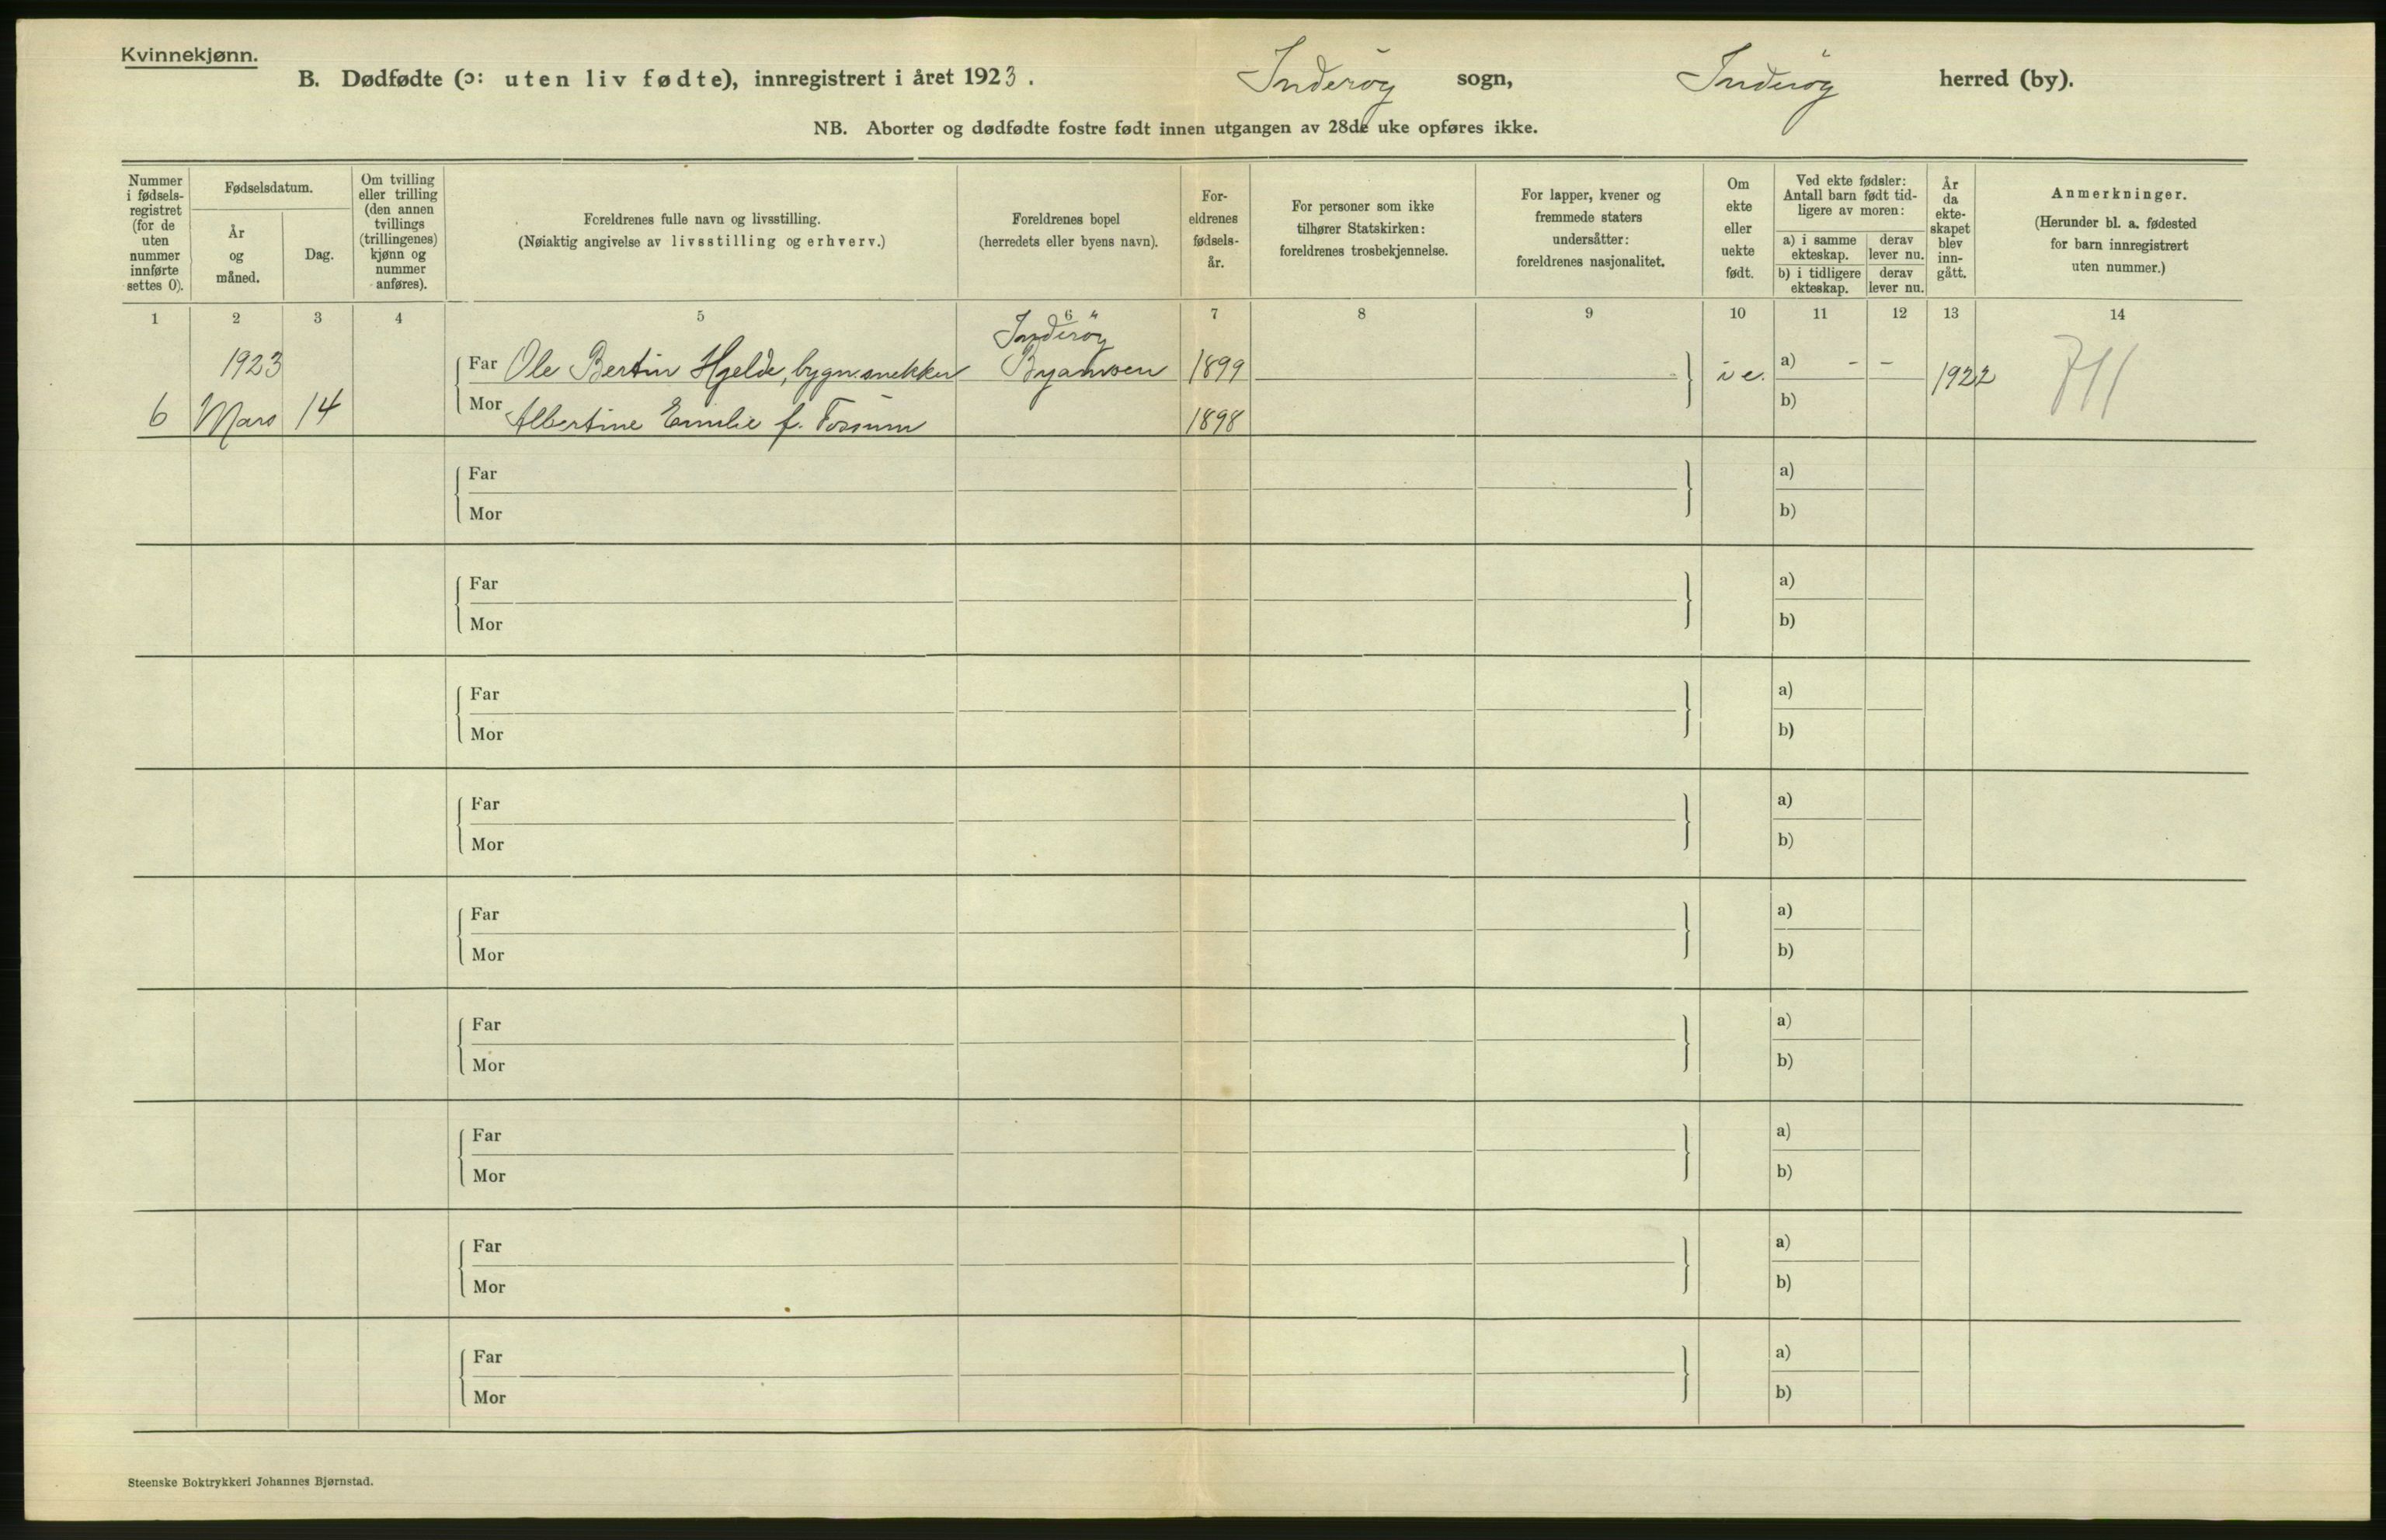 Kvinnekjønn.
B. Dødfødte (ɔ: uten liv fødte), innregistrert i året 1923. Inderøy sogn, Inderøy herred (by).
NB. Aborter og dødfødte fostre født innen utgangen av 28de uke opføres ikke.
Nummer
i fødsels-
registret
(for de
uten
nummer
innførte
settes 0).
Fødselsdatum.
År
og
måned.
Dag.
Om tvilling
eller trilling
(den annen
tvillings
(trillingenes)
kjønn og
nummer
anføres).
Foreldrenes fulle navn og livsstilling.
(Nøiaktig angivelse av livsstilling og erhverv.)
Foreldrenes bopel
(herredets eller byens navn).
For-
eldrenes
fødsels-
år.
For personer som ikke
tilhører Statskirken:
foreldrenes trosbekjennelse.
For lapper, kvener og
fremmede staters
undersåtter:
foreldrenes nasjonalitet.
Om
ekte
eller
uekte
født.
Ved ekte fødsler:
Antall barn født tid-
ligere av moren:
a) i samme
ekteskap.
derav
lever nu.
b) i tidligere
ekteskap.
derav
lever nu.
År
da
ekte-
skapet
blev
inn-
gått.
Anmerkninger.
(Herunder bl. a. fødested
for barn innregistrert
uten nummer.)
1 2 3 4 5 6 7 8 9 10 11 12 13 14
Inderöy
1923 Far Ole Bertin Hjelde, bygn.snekker 1899 i e. a) - - 1922
6 Mars 14 Mor Albertine Emilie f. Tossum 1898 b)
Far a)
Mor b)
Far a)
Mor b)
Far a)
Mor b)
Far a)
Mor b)
Far a)
Mor b)
Far a)
Mor b)
Far a)
Mor b)
Far a)
Mor b)
Far a)
Mor b)
Steenske Boktrykkeri Johannes Bjørnstad.